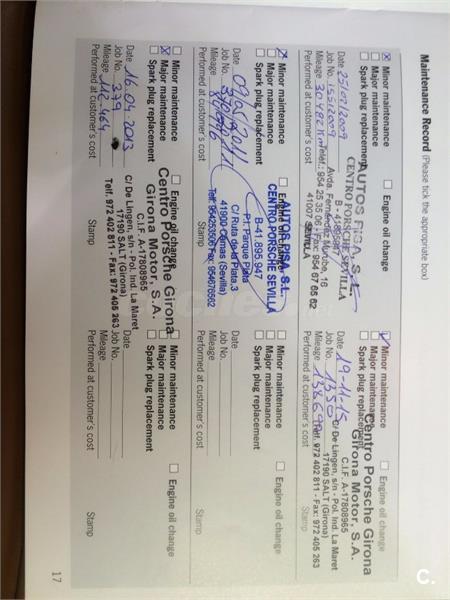 Maintenance Record (Please tick the appropriate box)
Minor maintenance
Major maintenance
Spark plug replacement
Engine oil change
AUTOS PISA, S.L.
CENTRO PORSCHE SEVILLA
Date 25/09/2009
Job No.
Avda. Fernández Murube, 16
Mileage 30482 Km
Telef.: 954 25 35 06 - Fax: 954 67 65 62
41007 SEVILLA
Performed at customer's cost
Minor maintenance
Major maintenance
Spark plug replacement
Centro Porsche Girona
Girona Motor, S.A.
C.I.F. A-17808965
Date 19-11-15
C/ De Lingen, s/n - Pol. Ind. La Maret
Job No. 1350
17190 SALT (Girona)
Mileage
Telf. 972 402 811 - Fax: 972 405 263
Performed at customer's cost
Minor maintenance
Major maintenance
Spark plug replacement
AUTOS PISA, S.L.
CENTRO PORSCHE SEVILLA
B-41.895.947
P.I. Parque Plata
C/ Ruta de la Plata, 3
41900 - Camas (Sevilla)
Telf: 954253506 Fax: 954676562
Date 09/05/2011
Job No.
Mileage
Performed at customer's cost
Minor maintenance
Major maintenance
Spark plug replacement
Engine oil change
Date
Job No.
Mileage
Performed at customer's cost
Stamp
Minor maintenance
Major maintenance
Spark plug replacement
Engine oil change
Centro Porsche Girona
Girona Motor, S.A.
C.I.F. A-17808965
C/ De Lingen, s/n - Pol. Ind. La Maret
17190 SALT (Girona)
Telf. 972 402 811 - Fax: 972 405 263
Date 16.04.2013
Job No. 379
Mileage 112.464
Performed at customer's cost
Stamp
Minor maintenance
Major maintenance
Spark plug replacement
Engine oil change
Date
Job No.
Mileage
Performed at customer's cost
Stamp
17
C.